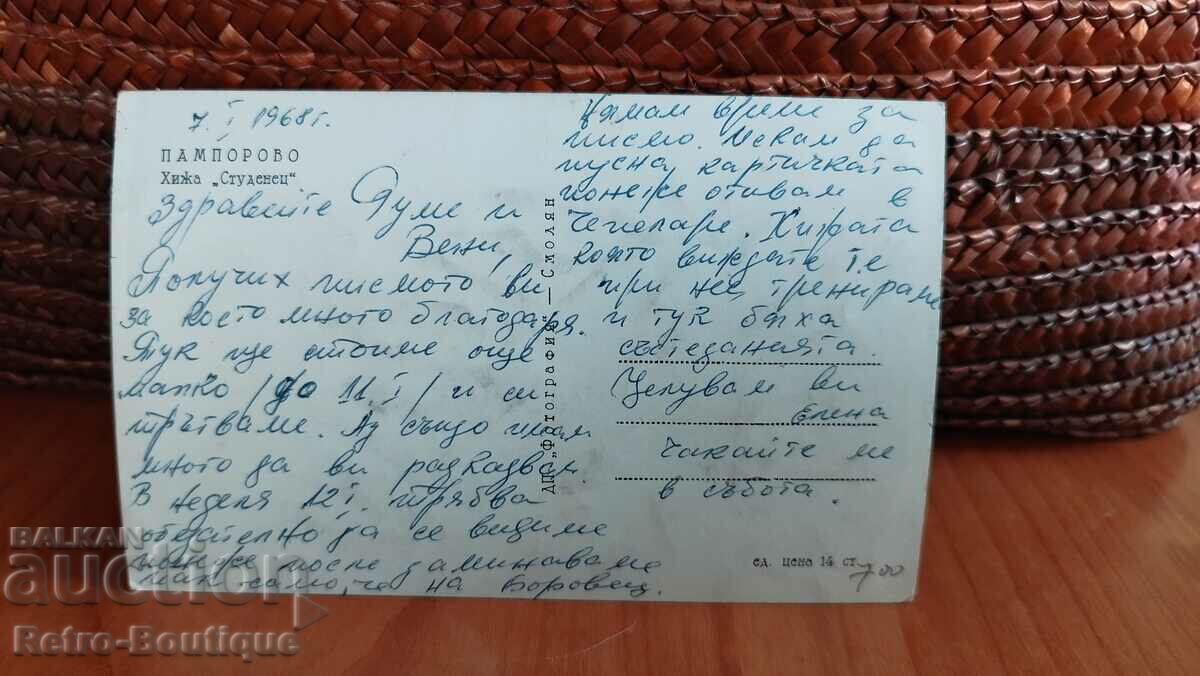 7. I 1968 г.
ПАМПОРОВО
Хижа „Студенец"
Здравейте Думе и
Вени,
Получих писмото ви
за което много благодаря.
Тук ще стоиме още
малко /до 11.I/ и си
тръгваме. Аз също имам
много да ви разказвам
В неделя 12 I. трябва
обезателно да се видиме
понеже после заминаваме
пак само, че на Боровец.
ДПС „Фотография" — Смолян
Нямам време за
писмо. Искам да
пусна картичката
понеже отивам в
Чепеларе. Хижата
която виждате те
при нея тренираме
и тук бяха
състезанията.
Целувам ви
Елена
Чакайте ме
в събота.
ед. цена 14 ст.
700
BALKAN
auction
Retro-Boutique